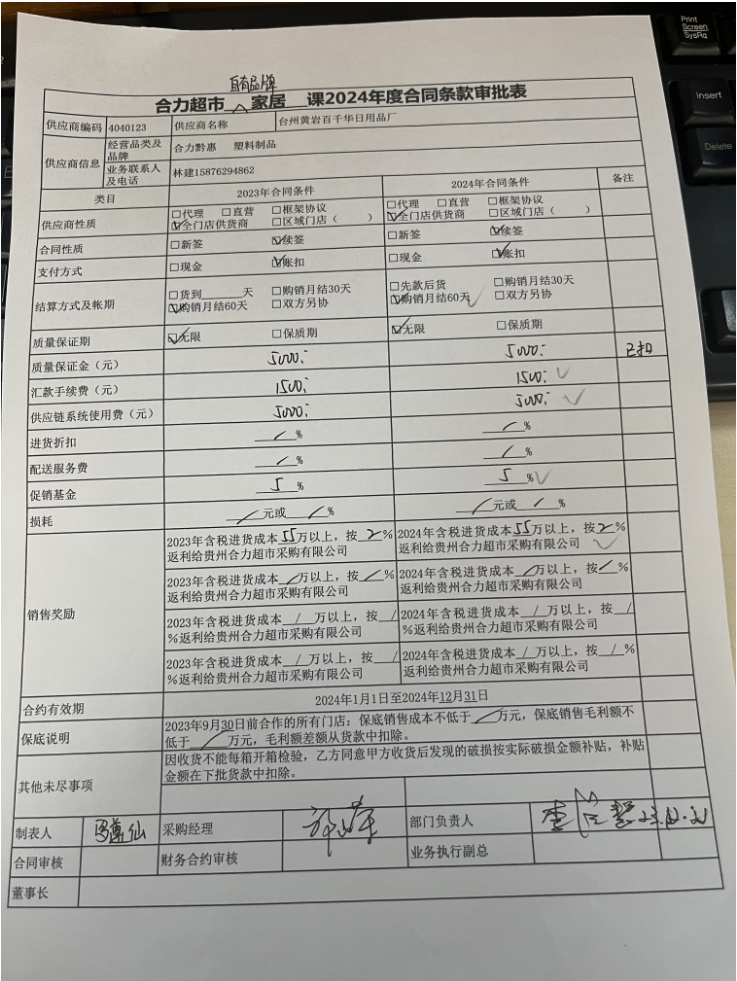 Print
Screen
SysRq
Insert
Delete
自有品牌
合力超市 家居 课2024年度合同条款审批表
供应商编码 4040123 供应商名称 台州黄岩百千华日用品厂
供应商信息 经营品类及品牌 合力黔惠 塑料制品
业务联系人及电话 林建15876294862
类目 2023年合同条件 2024年合同条件 备注
供应商性质 □代理 □直营 □框架协议 □代理 □直营 □框架协议
☑全门店供货商 □区域门店（ ） ☑全门店供货商 □区域门店（ ）
合同性质 □新签 ☑续签 □新签 ☑续签
支付方式 □现金 ☑账扣 □现金 ☑账扣
结算方式及帐期 □货到____天 □购销月结30天 □先款后货 □购销月结30天
☑购销月结60天 □双方另协 ☑购销月结60天 □双方另协
质量保证期 ☑无限 □保质期 ☑无限 □保质期
质量保证金（元） 5000: 5000: 已扣
汇款手续费（元） 1500: 1500:
供应链系统使用费（元） 5000: 5000:
进货折扣 / % / %
配送服务费 / % / %
促销基金 5 % 5 %
损耗 / 元或 / % / 元或 / %
销售奖励
2023年含税进货成本55万以上，按2% 2024年含税进货成本55万以上，按2%
返利给贵州合力超市采购有限公司 返利给贵州合力超市采购有限公司
2023年含税进货成本/万以上，按/% 2024年含税进货成本/万以上，按/%
返利给贵州合力超市采购有限公司 返利给贵州合力超市采购有限公司
2023年含税进货成本/万以上，按/ 2024年含税进货成本/万以上，按/
%返利给贵州合力超市采购有限公司 %返利给贵州合力超市采购有限公司
2023年含税进货成本/万以上，按/ 2024年含税进货成本/万以上，按/%
%返利给贵州合力超市采购有限公司 返利给贵州合力超市采购有限公司
合约有效期 2024年1月1日至2024年12月31日
保底说明 2023年9月30日前合作的所有门店：保底销售成本不低于/万元，保底销售毛利额不
低于/万元，毛利额差额从货款中扣除。
其他未尽事项 因收货不能每箱开箱检验，乙方同意甲方收货后发现的破损按实际破损金额补贴，补贴
金额在下批货款中扣除。
制表人 采购经理 部门负责人
合同审核 财务合约审核 业务执行副总
董事长